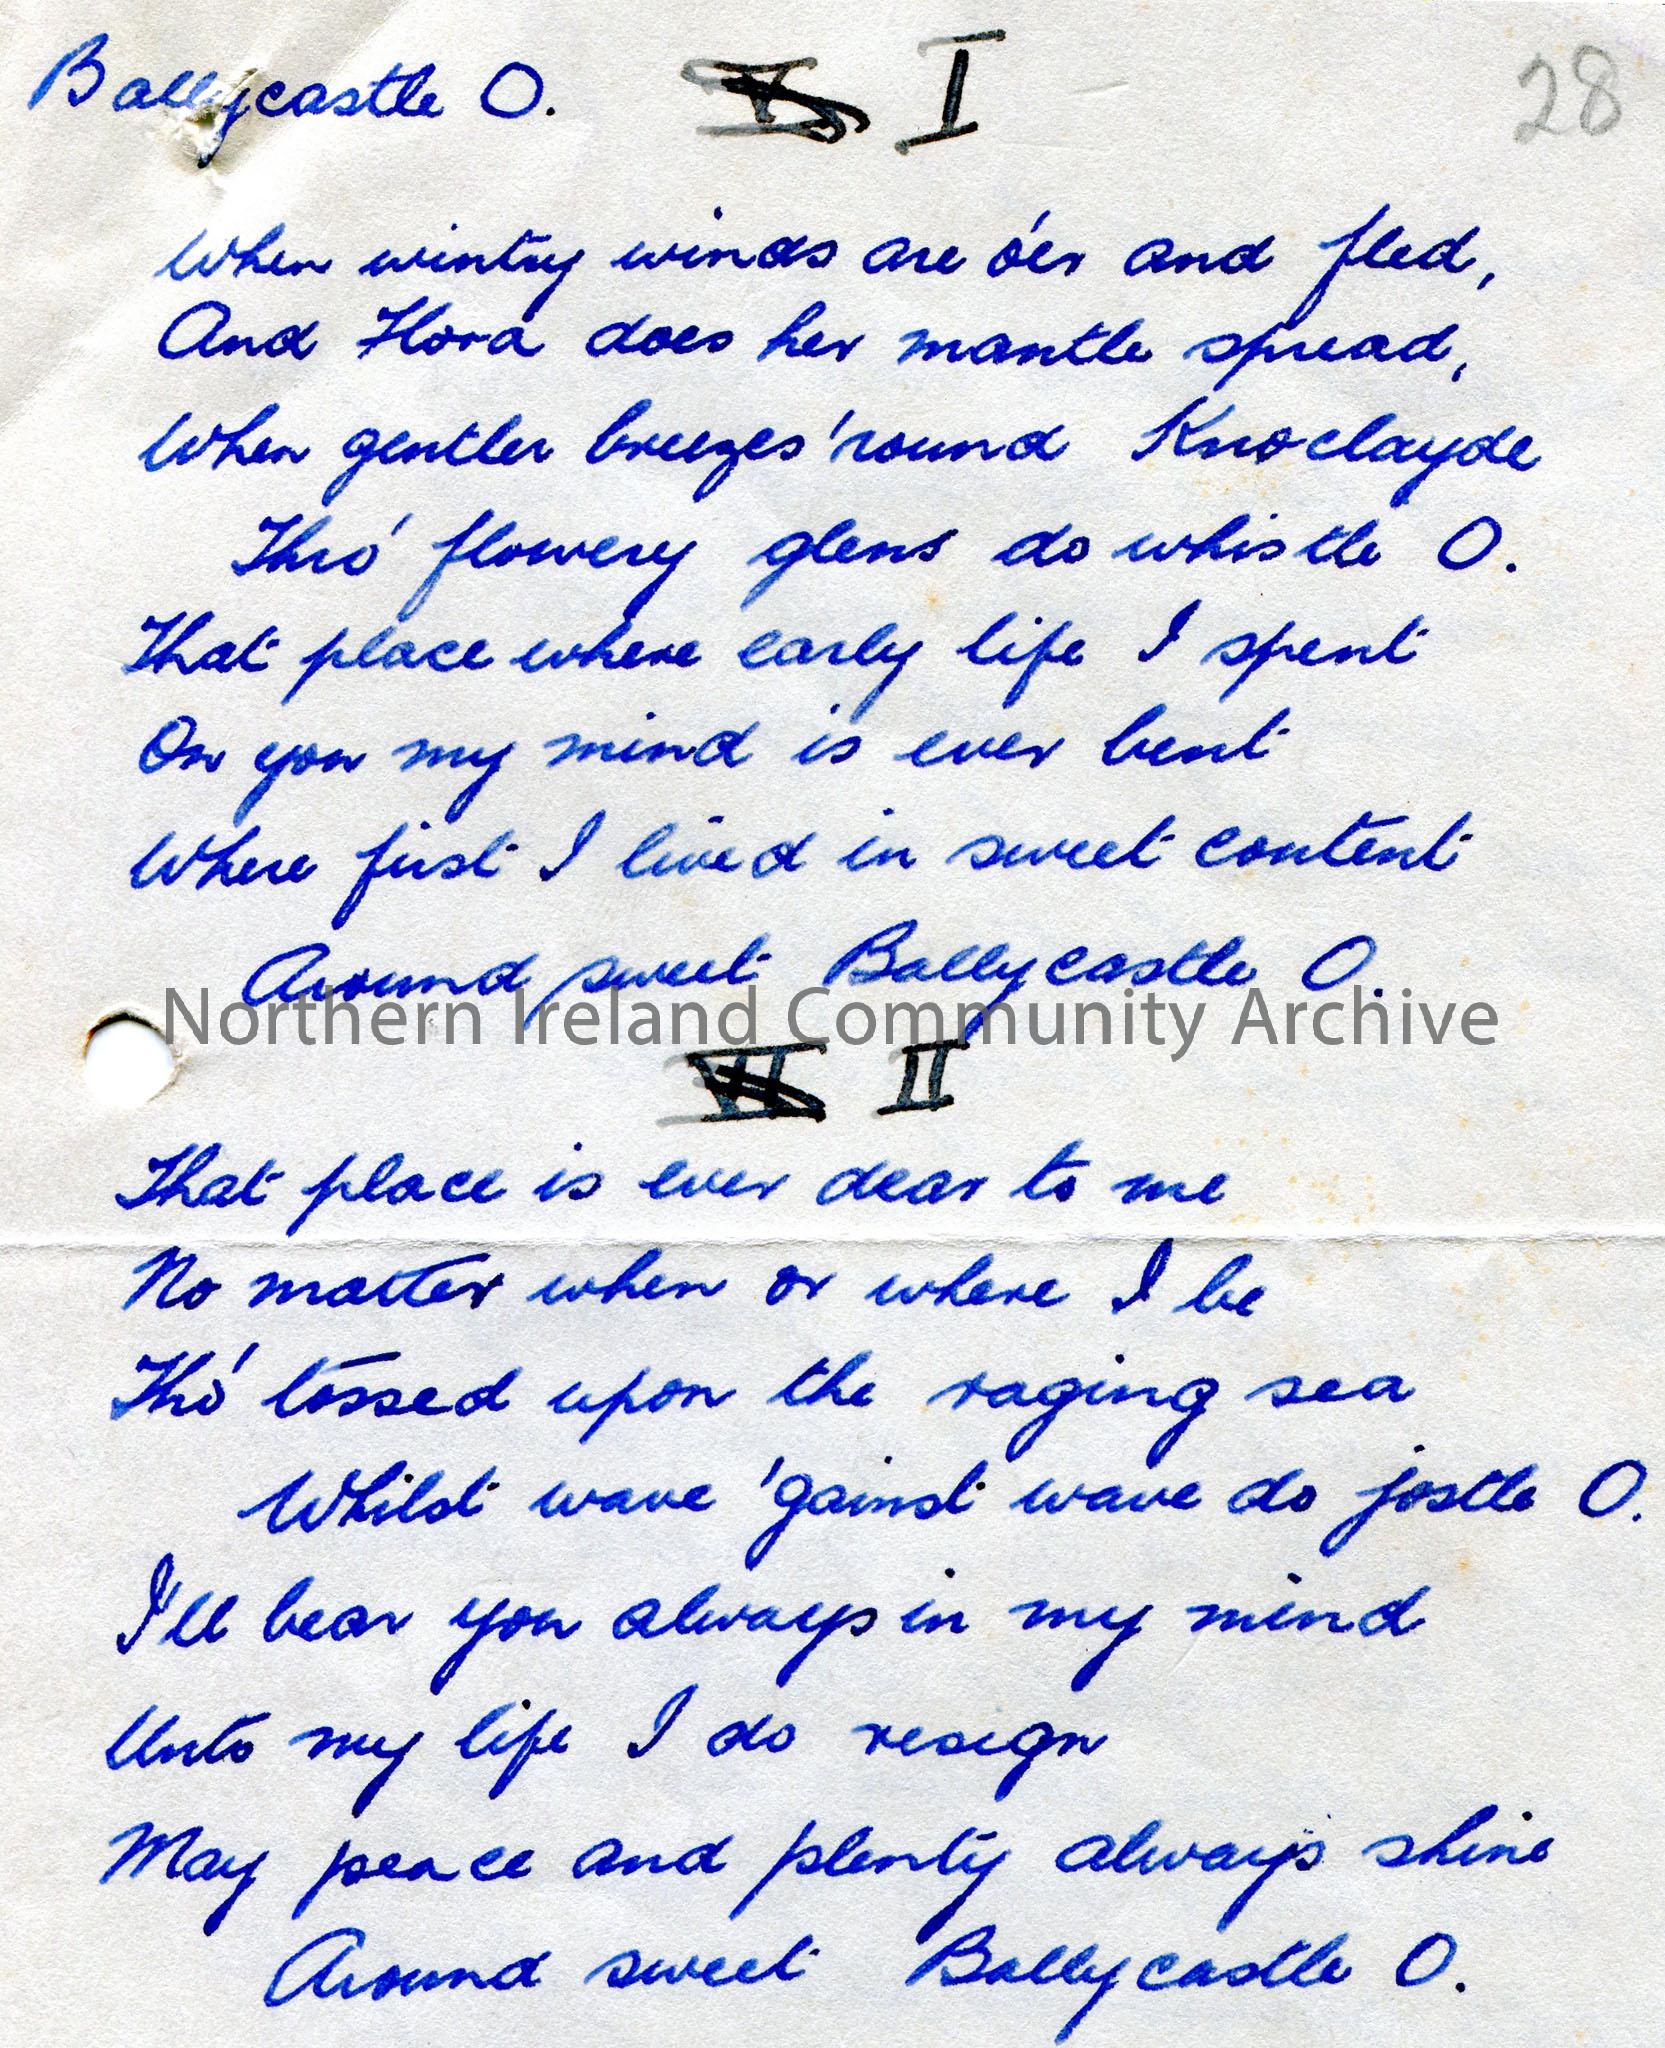 Ballycastle O. I 28
When wintry winds are o'er and fled,
And Flora does her mantle spread,
When gentler breezes 'round Knoclayde
Thro' flowery glens do whistle O.
That place where early life I spent
On you my mind is ever bent
Where first I lived in sweet content
Around sweet Ballycastle O.
Northern Ireland Community Archive
VI II
That place is ever dear to me
No matter when or where I be
Tho' tossed upon the raging sea
Whilst wave 'gainst wave do jostle O.
I'll bear you always in my mind
Unto my life I do resign
May peace and plenty always shine
Around sweet Ballycastle O.